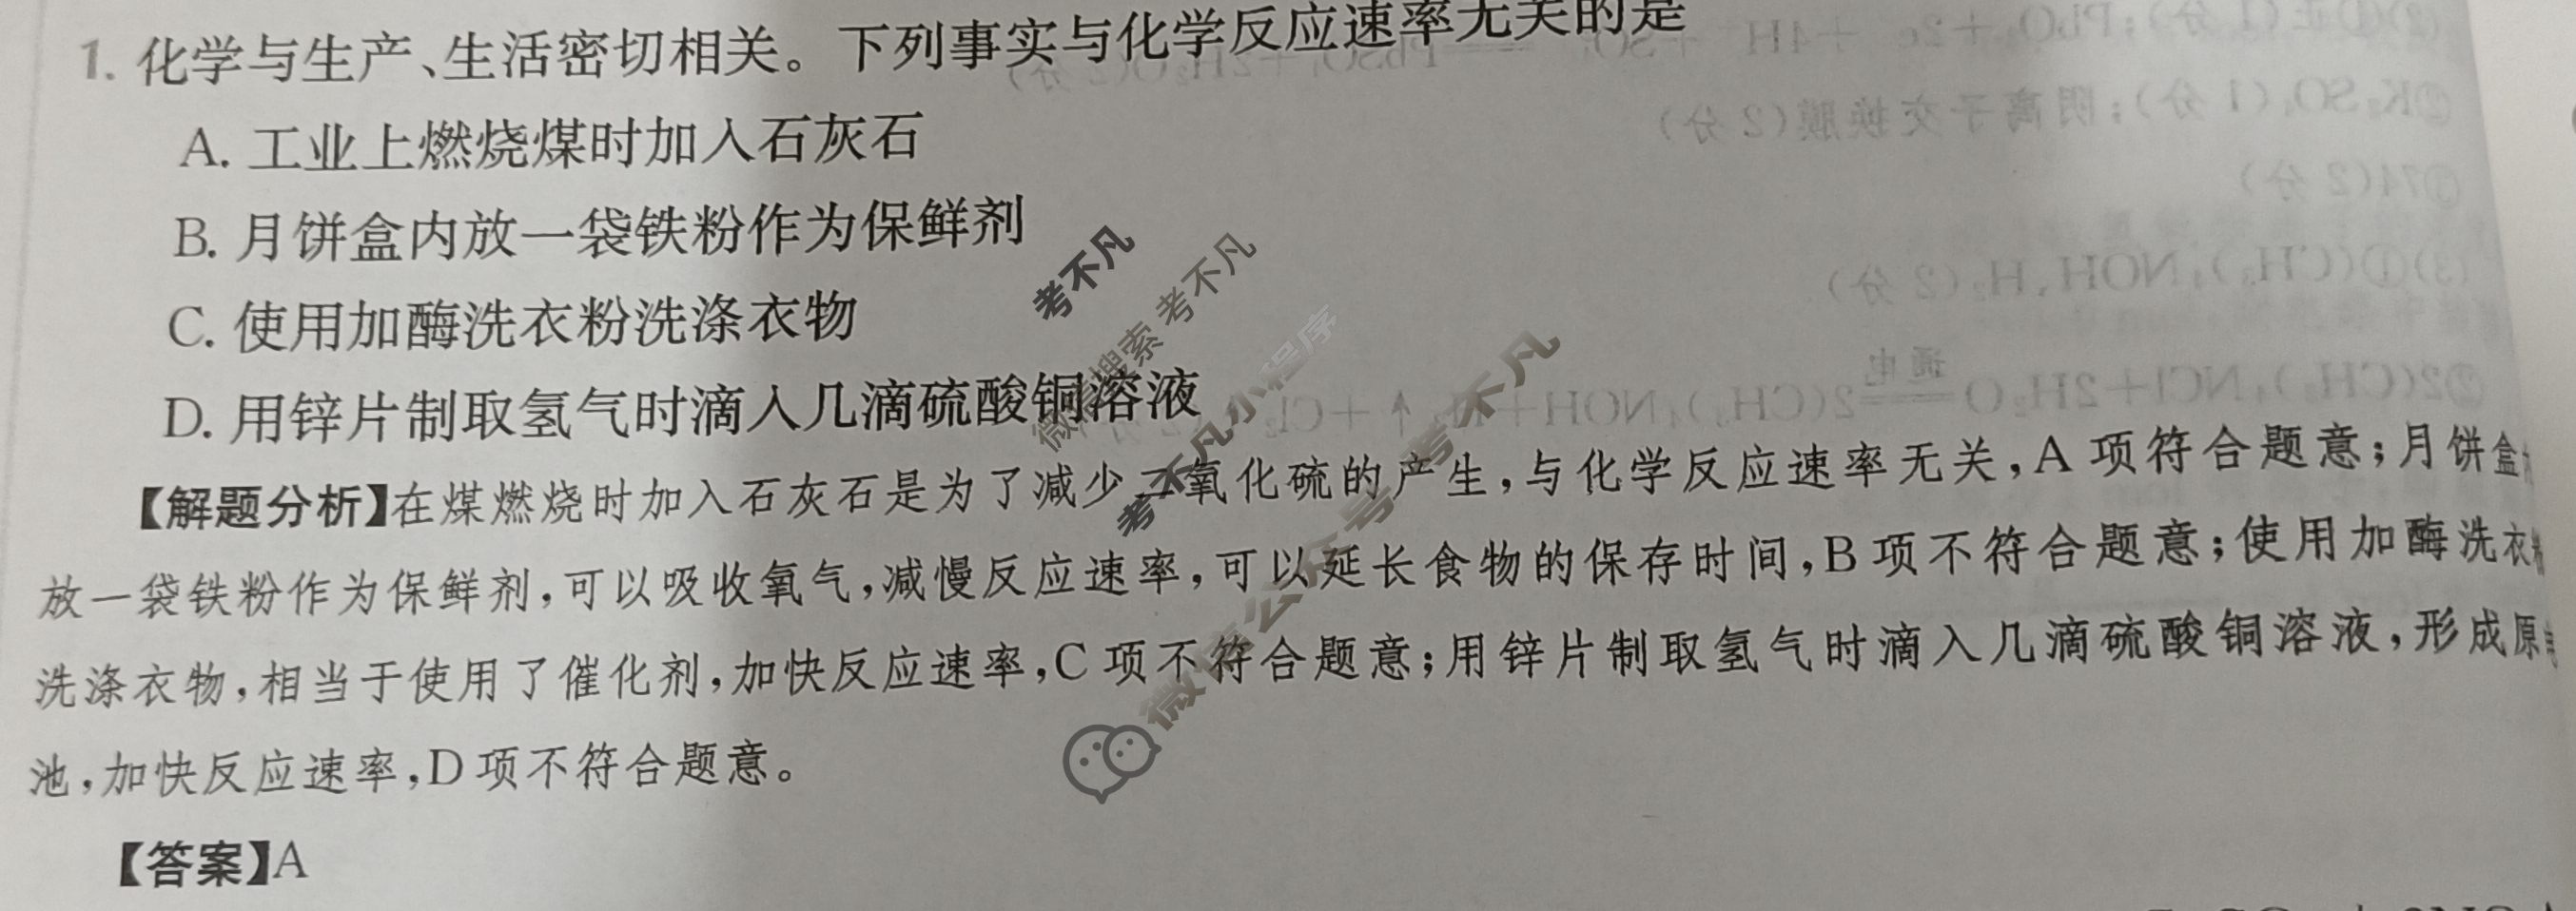 1. 化学与生产、生活密切相关。下列事实与化学反应速率无关的是
A. 工业上燃烧煤时加入石灰石
B. 月饼盒内放一袋铁粉作为保鲜剂
C. 使用加酶洗衣粉洗涤衣物
D. 用锌片制取氢气时滴入几滴硫酸铜溶液
【解题分析】在煤燃烧时加入石灰石是为了减少二氧化硫的产生,与化学反应速率无关,A 项符合题意;月饼盒
放一袋铁粉作为保鲜剂,可以吸收氧气,减慢反应速率,可以延长食物的保存时间,B 项不符合题意;使用加酶洗衣
洗涤衣物,相当于使用了催化剂,加快反应速率,C 项不符合题意;用锌片制取氢气时滴入几滴硫酸铜溶液,形成原
池,加快反应速率,D 项不符合题意。
【答案】A
考不凡
微信搜索 考不凡
考不凡小程序
微信公众号 考不凡